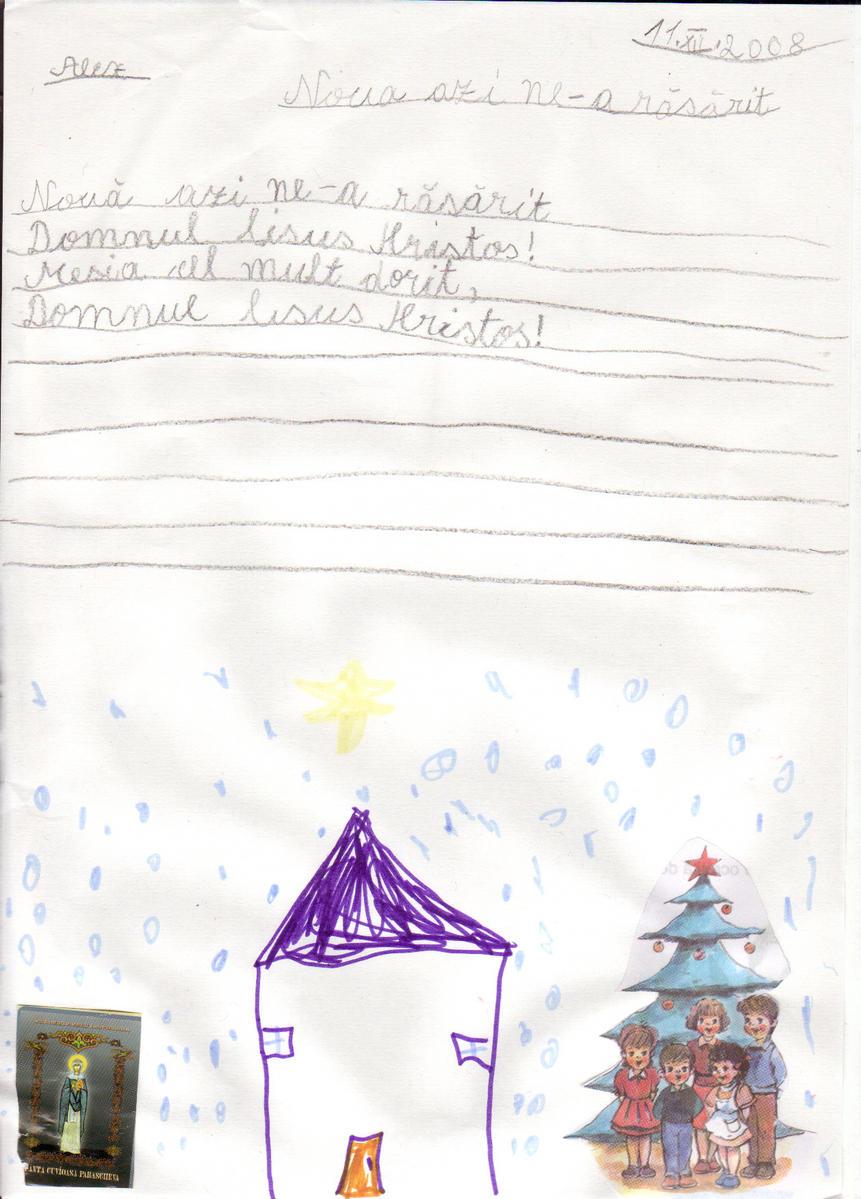 11.XII.2008
Alex
Noua azi ne-a răsărit
Nouă azi ne-a răsărit
Domnul Iisus Hristos!
Mesia cel mult dorit,
Domnul Iisus Hristos!
SFÂNTA CUVIOASĂ PARASCHEVA